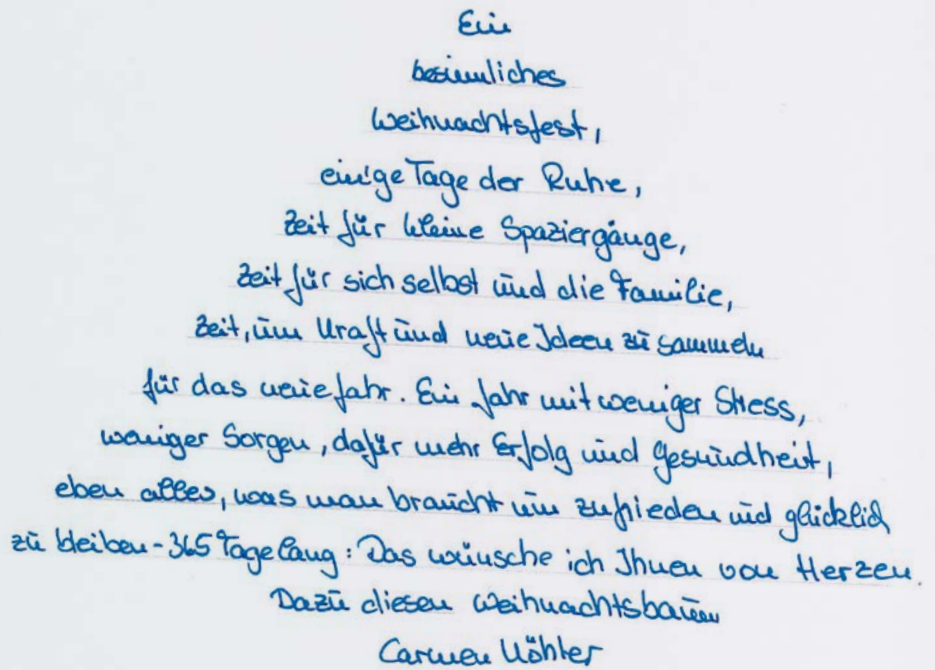 Ein
besinnliches
Weihnachtsfest,
einige Tage der Ruhe,
Zeit für kleine Spaziergänge,
Zeit für sich selbst und die Familie,
Zeit, um Kraft und neue Ideen zu sammeln
für das neue Jahr. Ein Jahr mit weniger Stress,
weniger Sorgen, dafür mehr Erfolg und Gesundheit,
eben alles, was man braucht um zufrieden und glücklich
zu bleiben - 365 Tage lang: Das wünsche ich Ihnen von Herzen.
Dazu diesen Weihnachtsbaum
Carmen Köhler